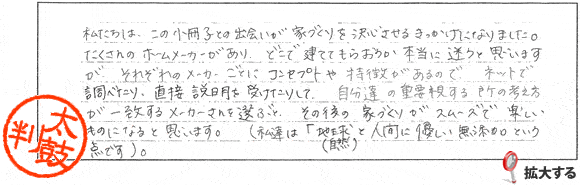 私たちは、この小冊子との出会いが家づくりを決心させるきっかけになりました。
たくさんのホームメーカーがあり、どこで建ててもらおうか本当に迷うと思います
が、それぞれのメーカーごとにコンセプトや特徴があるので、ネットで
調べたり、直接説明を受けたりして、自分達の重要視する所の考え方
が一致するメーカーさんを選ぶと、その後の家づくりがスムーズで楽しい
ものになると思います。(私達は「地球と人間に優しい無添加のという
(自然)
点です)。
太鼓判
拡大する